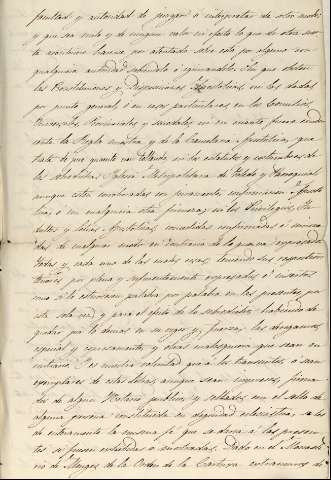 facultad y autoridad de juzgar o interpretar de otro modo;
y que sea nulo y de ningun valor ni efecto lo que de otra suer
te aconteciere hacerse por atentado sobre esto por alguno con
qualquiera autoridad sabiendo o ignorandolo. Sin que obsten
las Constituciones y Disposiciones Apostolicas, ni las dadas
por punto general o en casos particulares en los Concilios
Universales, Provinciales y Sinodales ni en cuanto fuera
nuestra y de la Cancelaria Apostolica, que
trata de
la sobredicha Iglesia Metropolitana de Toledo y
aunque esten corroboradas con juramento, confirmacion Aposto
lica o con qualquiera otra firmeza; ni los Privilegios, In
dultos y Letras Apostolicas, concedidas confirmadas e innova
das de cualquier modo en contrario de lo que va expresado.
Todas y cada una de las cuales cosas, teniendo sus respectivos
tenores por plena y suficientemente expresados e insertos
como si lo estuviesen palabra por palabra en las presentes, por
esta sola vez y para el efecto de lo sobredicho, habiendo de
quedar por lo demas en su vigor y fuerza; las derogamos
especial y expresamente y otras cualesquiera que sean en
contrario. Y es nuestra voluntad que a los transuntos o sean
exemplares de estas letras aunque sean impresos, firma
dos de algun Notario publico y sellados con el sello de
alguna persona constituida en dignidad eclesiastica, se les
de enteramente la misma fe que se daria a las presen
tes si fuesen exhibidas o mostradas. Dado en el Monaste
rio de
de la Orden de la Cartuja